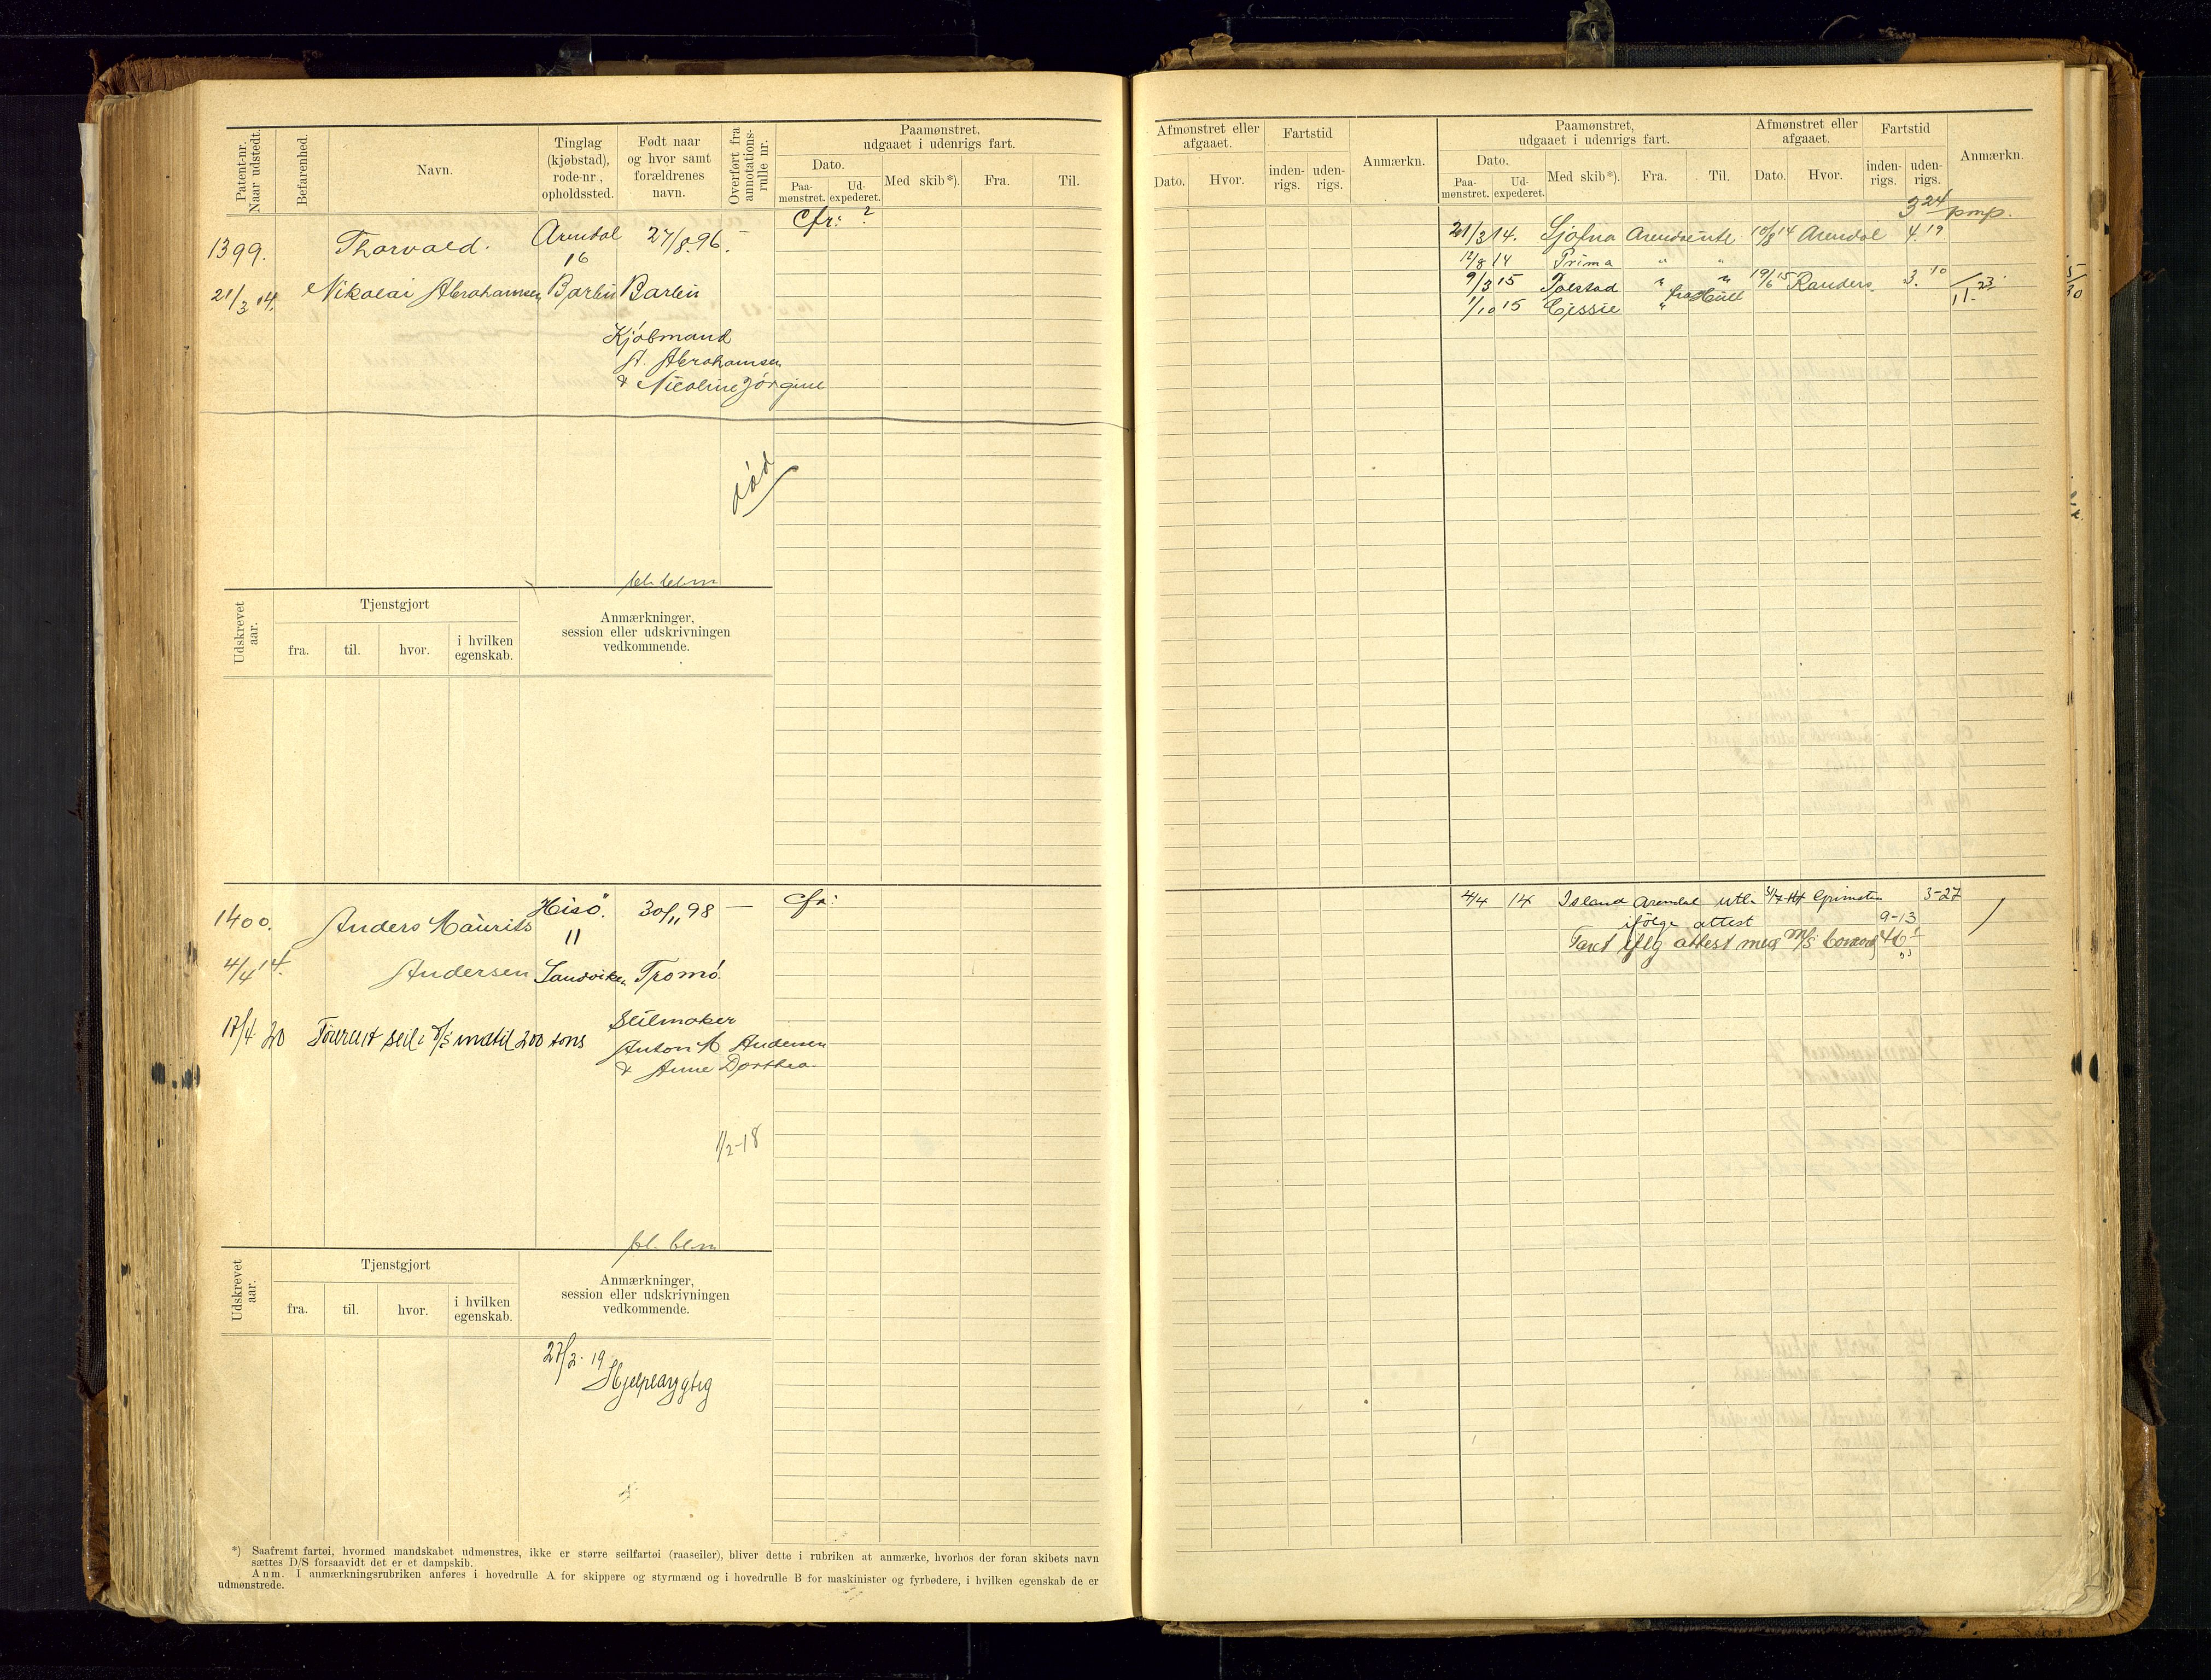 Patent-nr.
Naar udstedt.
Befarenhed.
Navn.
Tinglag
(kjøbstad),
rode-nr.,
opholdssted.
Født naar
og hvor samt
forældrenes
navn.
Overført fra
annotations-
rulle nr.
Paamønstret,
udgaaet i udenrigs fart.
Dato.
Paa-
mønstret.
Ud-
expederet.
Med skib*).
Fra.
Til.
Cfr: ?
1399.
Thorvald.
Arendal
16
27/8.96.
21/3 14.
Nikolai Abrahamsen
Barbu
Barbu
Kjøbmand
A. Abrahamsen
& Nicoline Jørgine
død
Udskrevet
aar.
Tjenstgjort
fra.
til.
hvor.
i hvilken
egenskab.
Anmærkninger,
session eller udskrivningen
vedkommende.
1400.
Anders Maurits
Hisø.
11
30/11 98
—
Cfr:
4/4 14.
Andersen
Sandviken
Tromø.
17/4 20
seil
200 tons
Seilmaker
Anton M Andersen
& Anne Dorthea
1/2-18
Udskrevet
aar.
Tjenstgjort
fra.
til.
hvor.
i hvilken
egenskab.
Anmærkninger,
session eller udskrivningen
vedkommende.
27/2. 19
Hjelpedygtig
*) Saafremt fartøi, hvormed mandskabet udmønstres, ikke er større seilfartøi (raaseiler), bliver dette i rubriken at anmærke, hvorhos der foran skibets navn
sættes D/S forsaavidt det er et dampskib.
Anm. I anmærkningsrubriken anføres i hovedrulle A for skippere og styrmænd og i hovedrulle B for maskinister og fyrbødere, i hvilken egenskab de er
udmønstrede.
Afmønstret eller
afgaaet.
Dato.
Hvor.
Fartstid
inden-
rigs.
uden-
rigs.
Anmærkn.
Paamønstret,
udgaaet i udenrigs fart.
Dato.
Paa-
mønstret.
Ud-
expederet.
Med skib*).
Fra.
Til.
Afmønstret eller
afgaaet.
Dato.
Hvor.
Fartstid
inden-
rigs.
uden-
rigs.
Anmærkn.
3 24
21/3 14. Sjofna Arendal 10/8 14 Arendal 4. 19
12/8 14 Prima " "
9/3 15 " " 19/6 15 Randers 3. 10
1/10 15 Cissie " 11. 23
4/4 14 Island Arendal utl. 14 3-27
ifølge attest 9-13
attest med M/S